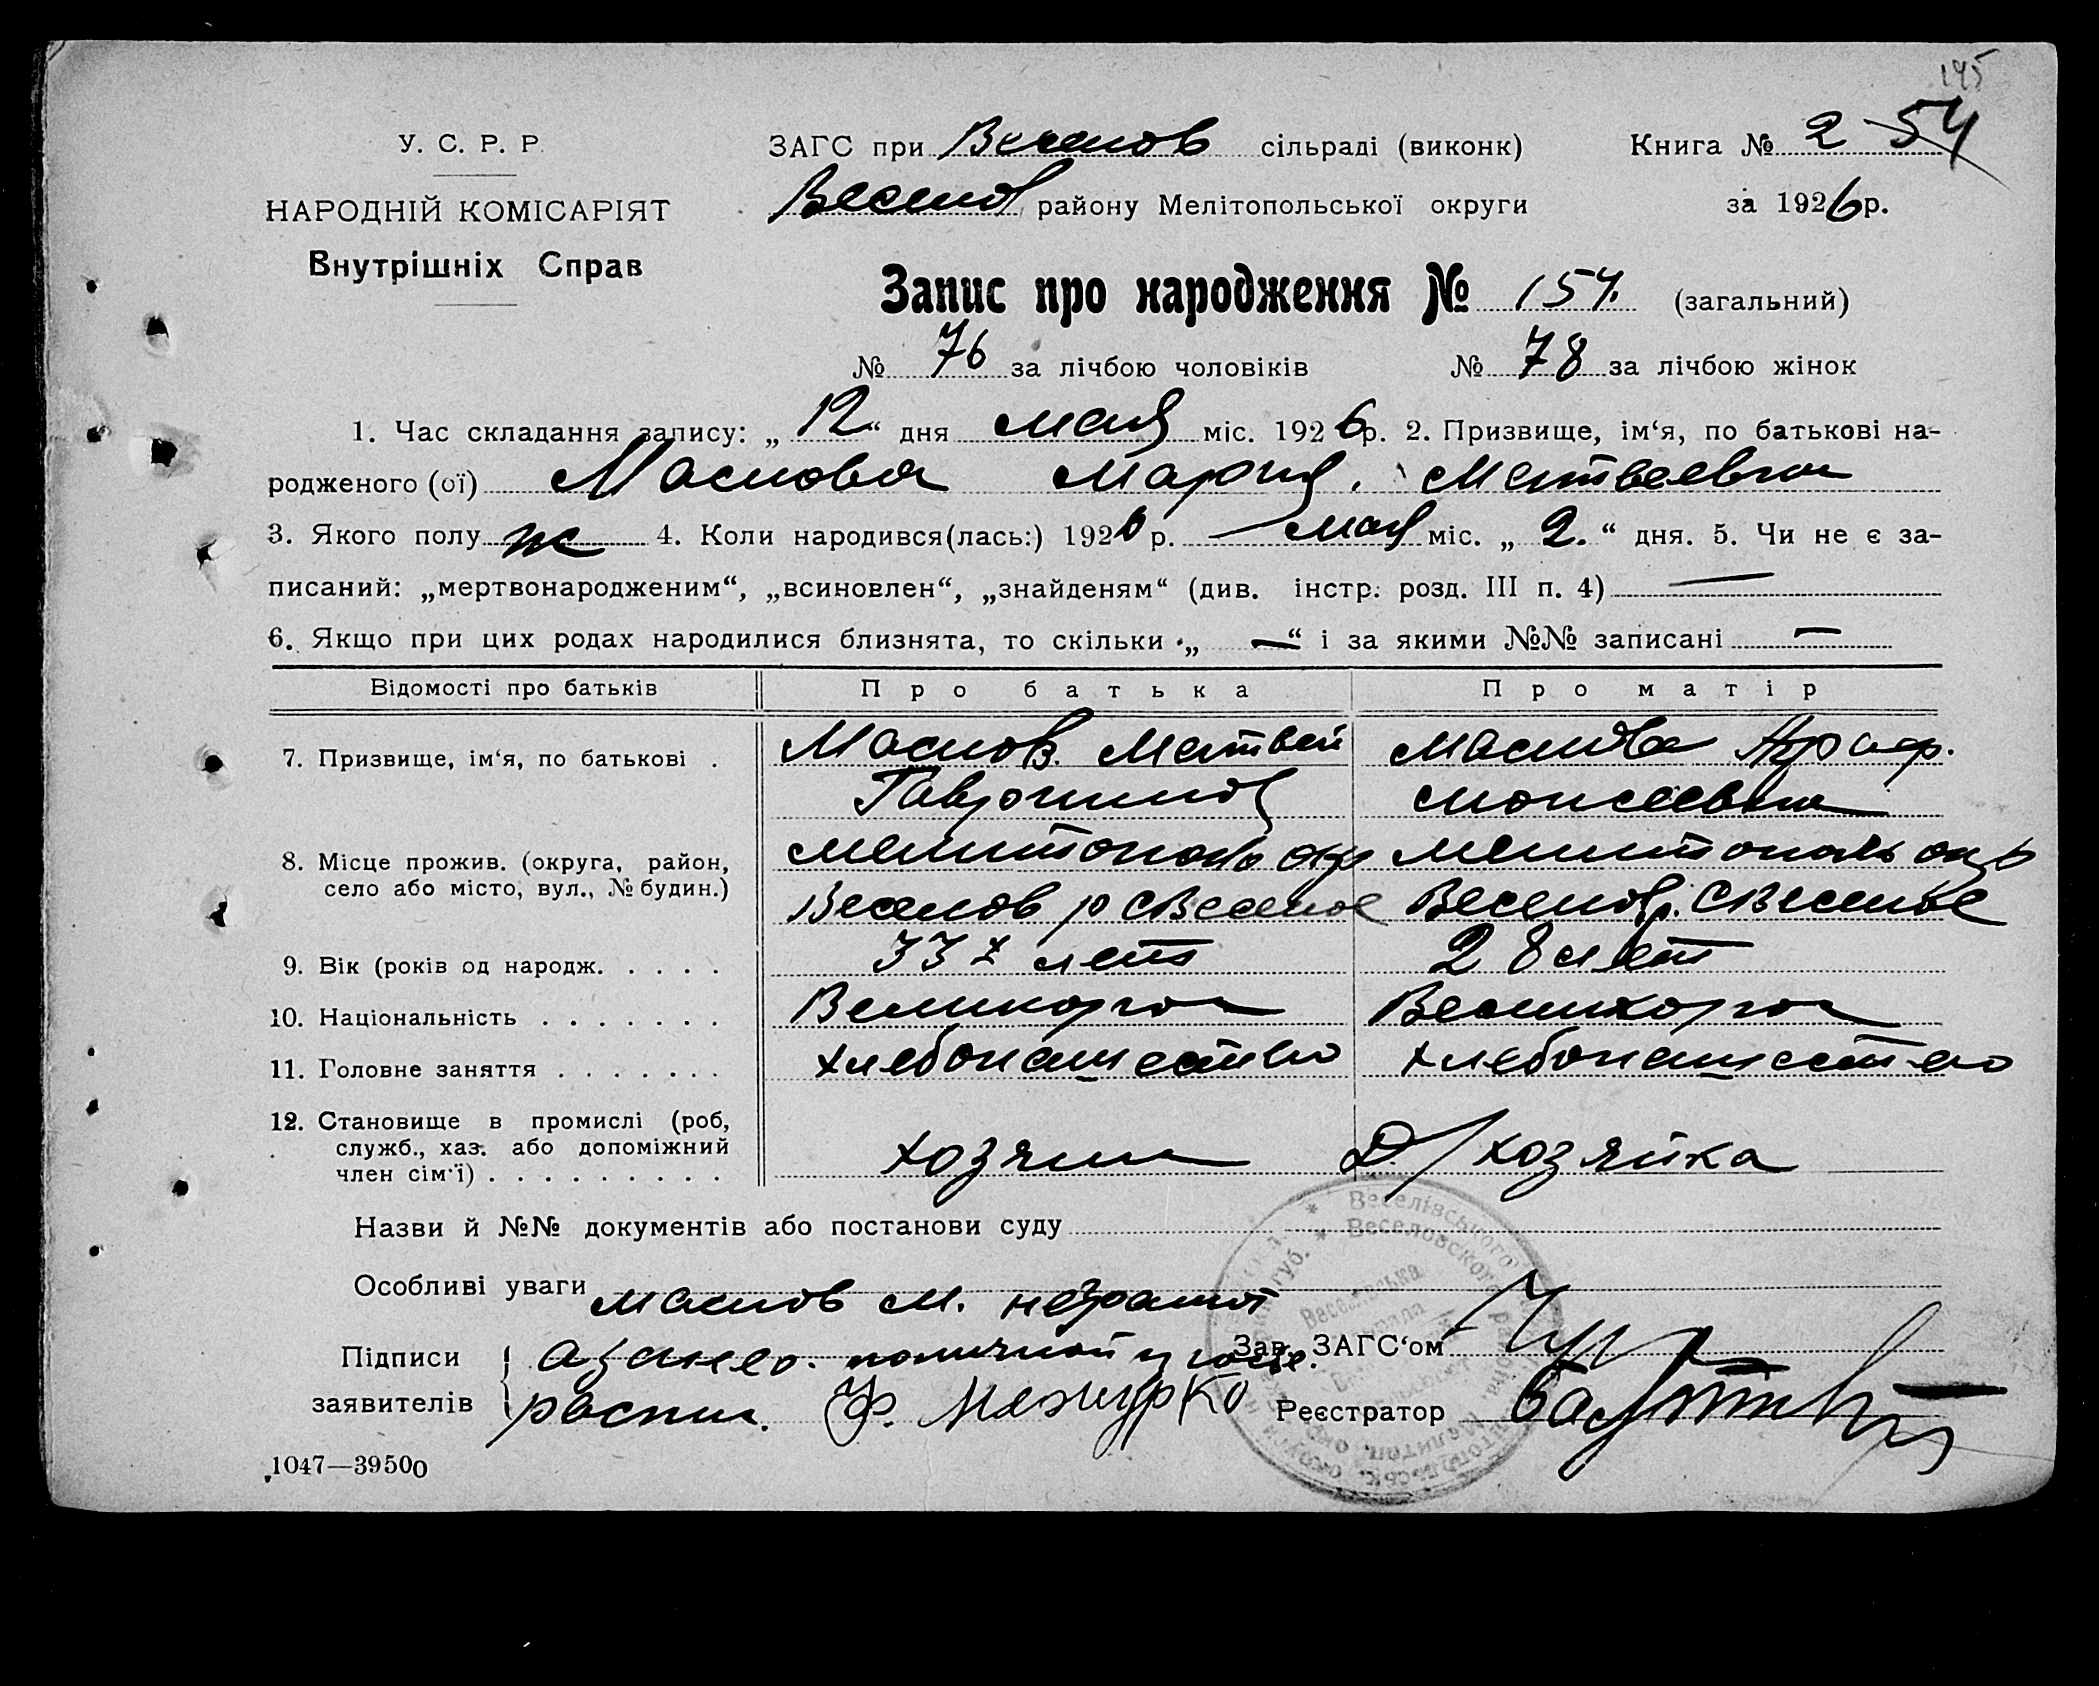 145
У. С. Р. Р.
ЗАГС при Веселов сільраді (виконк) Книга № 2 54
НАРОДНІЙ КОМІСАРІЯТ
Веселов району Мелітопольської округи за 1926 р.
Внутрішніх Справ
Запис про народження № 154. (загальний)
№ 76 за лічбою чоловіків № 78 за лічбою жінок
1. Час складання запису: „ 12 “ дня мая міс. 1926 р. 2. Призвище, ім‘я, по батькові на-
родженого (ої) Маслова Мария. Матвеевна
3. Якого полу ж 4. Коли народився(лась:) 1926 р. — мая міс. „ 2. “ дня. 5. Чи не є за-
писаний: „мертвонародженим“, „всиновлен“, „знайденям“ (див. інстр. розд. III п. 4) —
6. Якщо при цих родах народилися близнята, то скільки „ — “ і за якими №№ записані —
Відомості про батьків Про батька Про матір
7. Призвище, ім‘я, по батькові . Маслов. Матвей Маслова
Гаврилов Моисеевна
8. Місце прожив. (округа, район, Мелитополь окр Мелитополь окр
село або місто, вул., № будин.) Веселов р с Веселое Веселов р. с Веселое
9. Вік (років од народж. . . . . 33 х лет 28 лет
10. Національність . . . . . . . Великорос Великорос
11. Головне заняття . . . . . . . хлебопашество хлебопашество
12. Становище в промислі (роб,
служб., хаз. або допоміжний
член сім‘ї) . . . . . . . . . хозяин Д/хозяйка
Назви й №№ документів або постанови суду
Особливі уваги Маслов М. неграмот
Підписи
заявителів а за него
распис.
Зав. ЗАГС‘ом
Реєстратор
Веселівського
Веселовского района
1047—39500